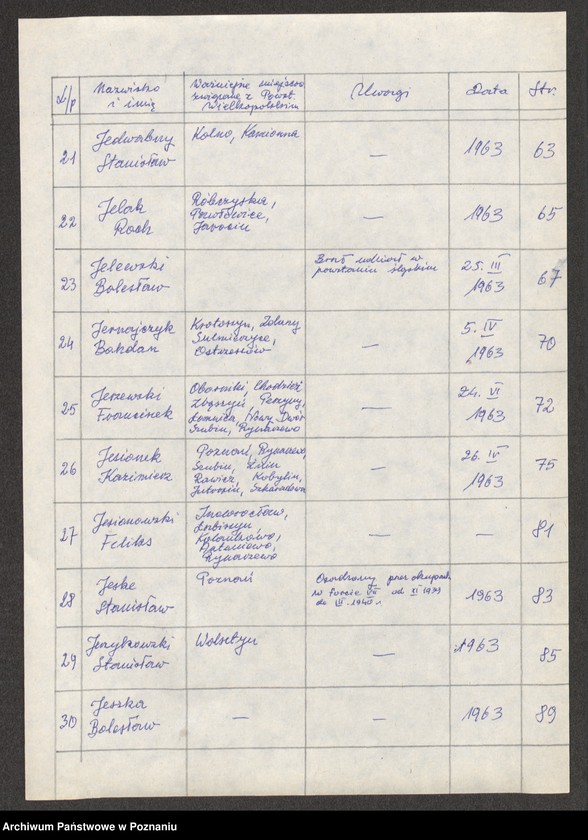 L/p Nazwisko i imię Ważniejsze miejscow. związane z Powst. Wielkopolskim Uwagi Data Str.
21 Jedwabny Stanisław Kolno, Kamionna — 1963 63
22 Jelak Roch Róbczyska, Pawłowice, Jarocin — 1963 65
23 Jelewski Bolesław Brał udział w powstaniu śląskim 25. III 1963 67
24 Jernajczyk Bohdan Krotoszyn, Zduny Sulmierzyce, Ostrzeszów — 5. IV 1963 70
25 Jeszewski Franciszek Oborniki, Chodzież Zbąszyń, Nowy Dwór Szubin, Rynarzewo — 24. VI 1963 72
26 Jesionek Kazimierz Poznań, Rynarzewo, Szubin, Żnin Rawicz, Kobylin, Jutrosin, Szkaradowo — 26. IV 1963 75
27 Jesionowski Feliks Inowrocław, Łabiszyn Antoniewo, Rynarzewo — — 81
28 Jeske Stanisław Poznań Osadzony przez okupanta w forcie VII od XI 1939 do III. 1940 r. 1963 83
29 Jerzykowski Stanisław Wolsztyn — 1963 85
30 Jeszka Bolesław — — 1963 89
Archiwum Państwowe w Poznaniu